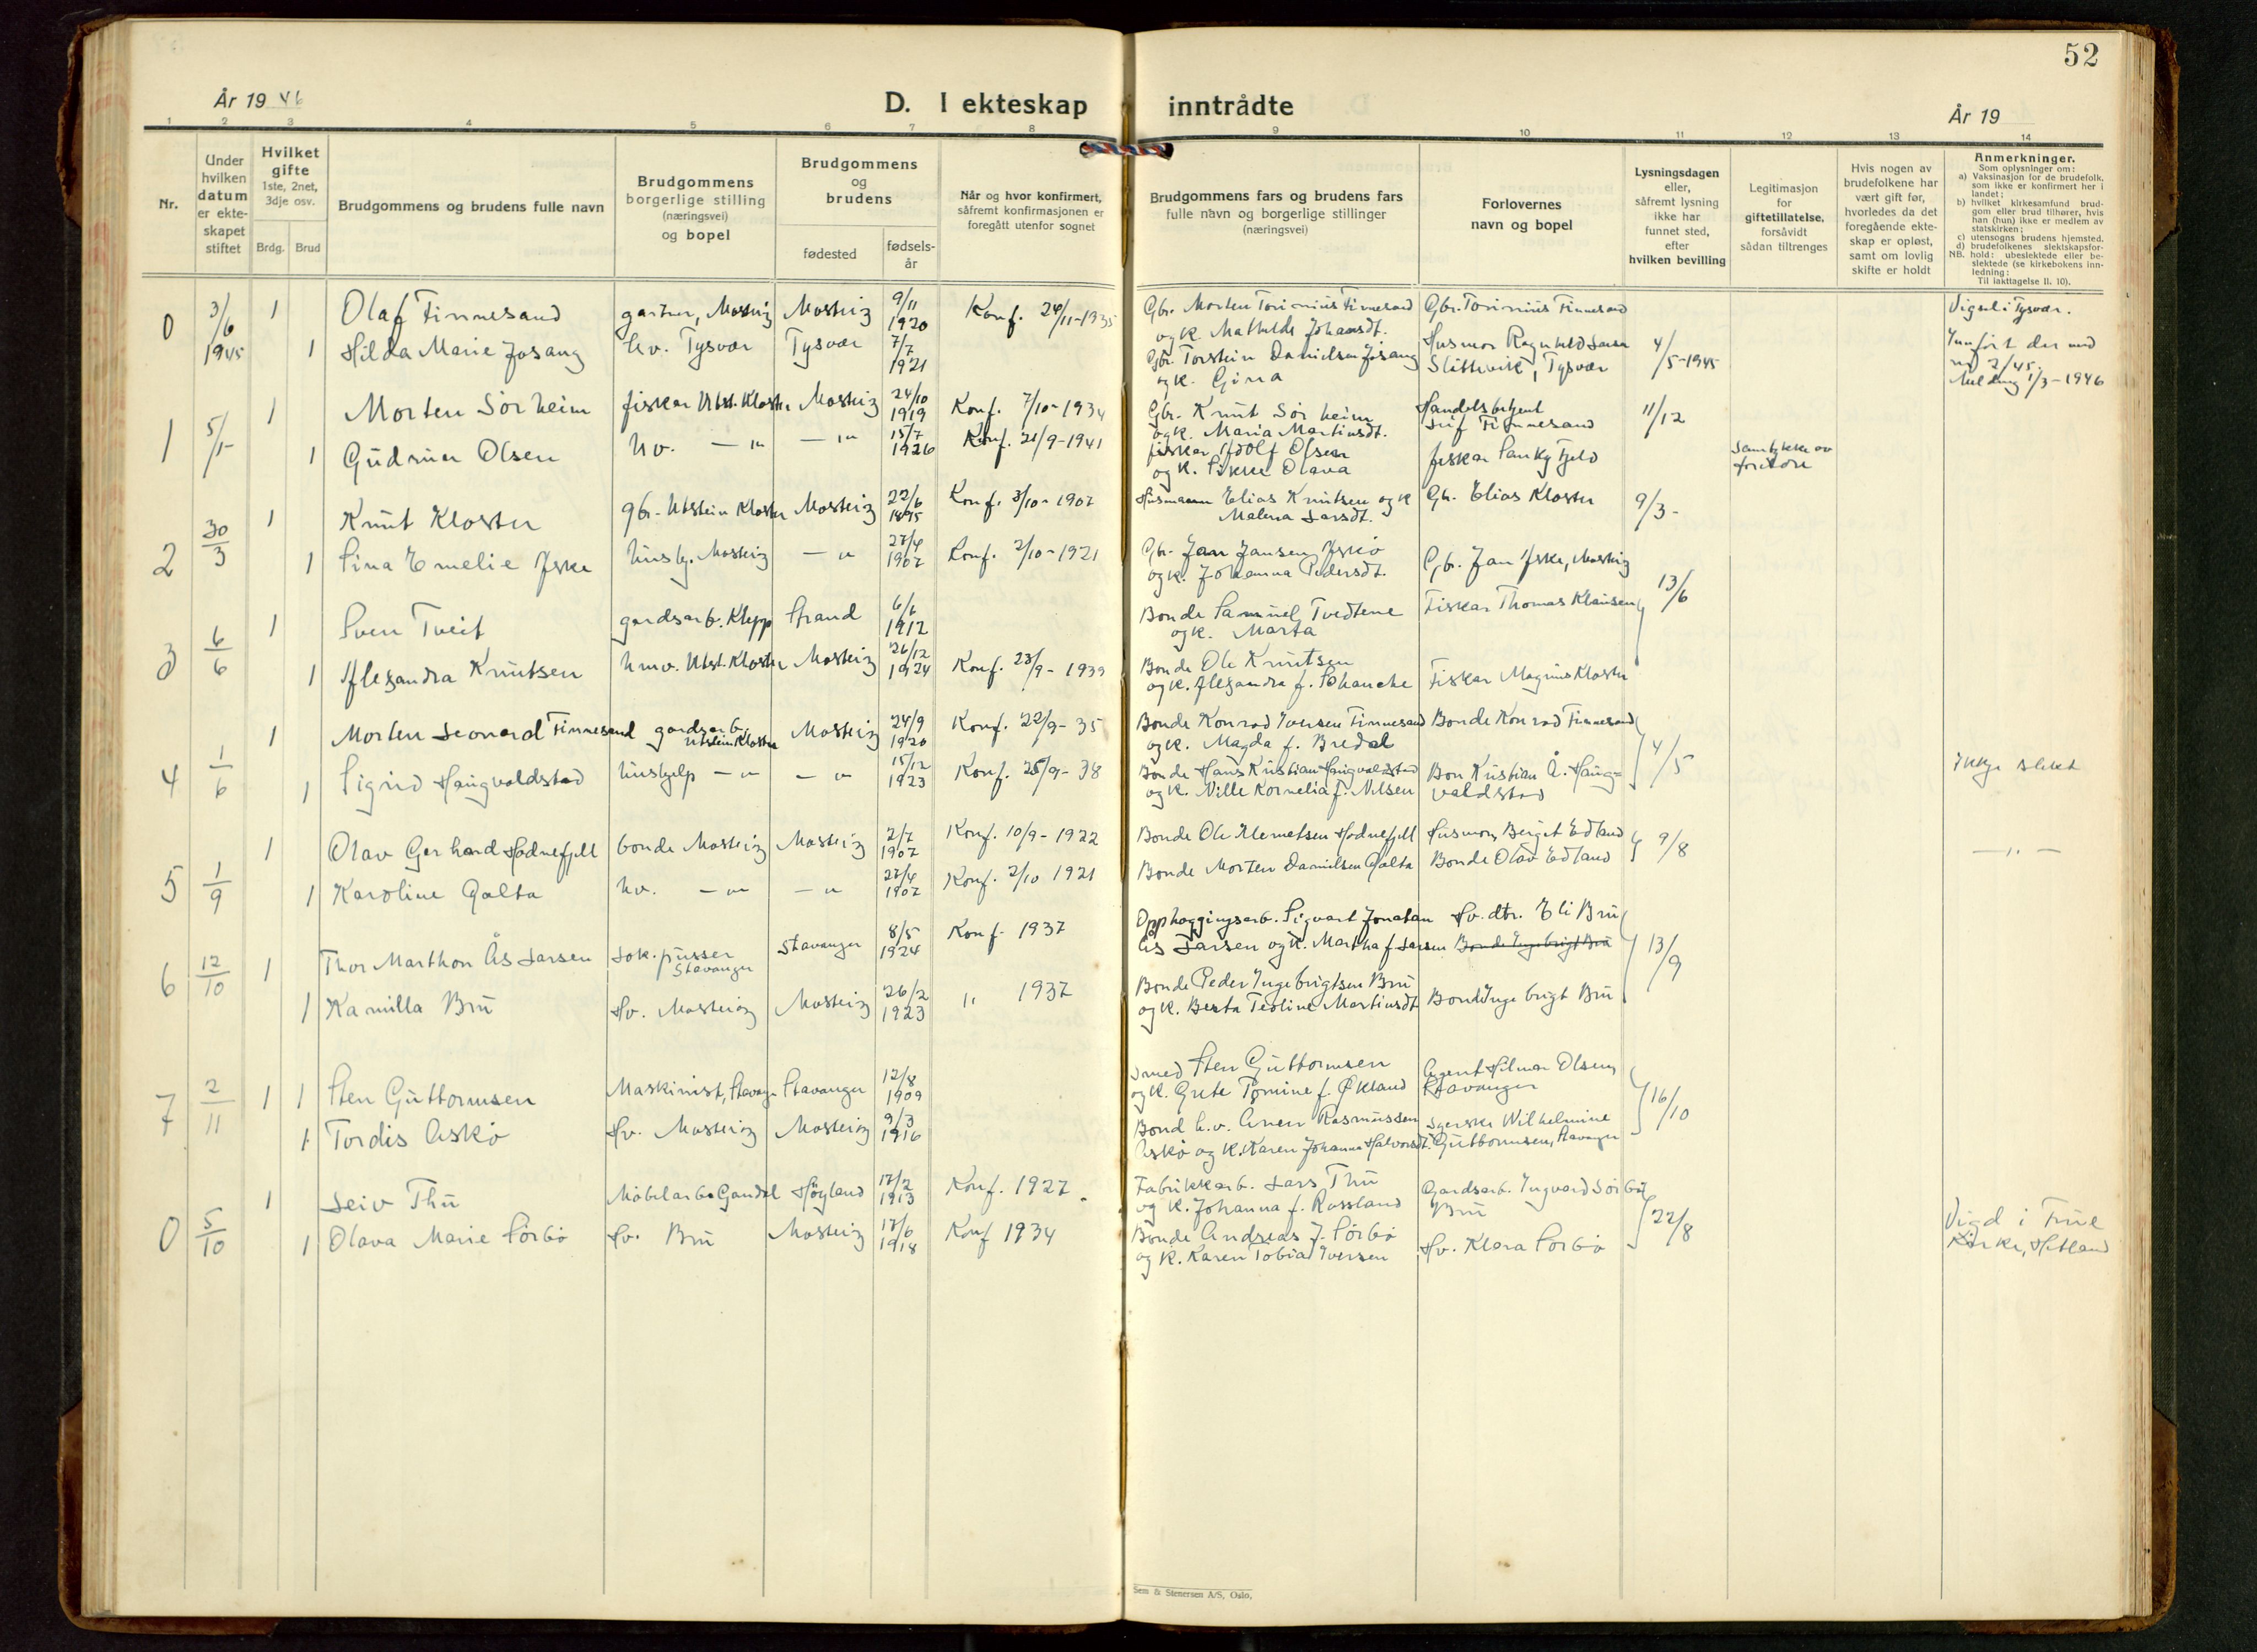 52
År 19 46
D. I ekteskap inntrådte
År 19
1 2 3 4 5 6 7 8 9 10 11 12 13 14
Nr.
Under hvilken datum er ekteskapet stiftet
Hvilket gifte 1ste, 2net, 3dje osv.
Brdg. Brud
Brudgommens og brudens fulle navn
Brudgommens borgerlige stilling (næringsvei) og bopel
Brudgommens og brudens
fødested
fødsels-år
Når og hvor konfirmert, såfremt konfirmasjonen er foregått utenfor sognet
Brudgommens fars og brudens fars fulle navn og borgerlige stillinger (næringsvei)
Forlovernes navn og bopel
Lysningsdagen eller, såfremt lysning ikke har funnet sted, efter hvilken bevilling
Legitimasjon for giftetillatelse, forsåvidt sådan tiltrenges
Hvis nogen av brudefolkene har vært gift før, hvorledes da det foregående ekteskap er opløst, samt om lovlig skifte er holdt
Anmerkninger.
Som oplysninger om:
a) Vaksinasjon for de brudefolk, som ikke er konfirmert her i landet;
b) hvilket kirkesamfund brudgom eller brud tilhører, hvis han (hun) ikke er medlem av statskirken;
c) utensogns brudens hjemsted.
d) brudefolkenes slektskapsforhold: ubeslektede eller beslektede (se kirkebokens innledning:
NB.
Til iakttagelse II. 10).
0 3/6 1945 1 Olaf Finnesand gartner, Mosterøy Mosterøy 9/11 1920 Konf. 24/11-1935 Gbr. Morten Torinius Finnesand Gbr. Torinius Finnesand Vigsel i Tysvær.
og k. Mathilde Johansdt.
1 Hilda Marie Josang hv. Tysvær Tysvær 7/7 1921 Gbr. Torstein Danielsen Jøsang Husmor Ragnhild 4/5-1945 Innført der med
og k. Gina Slåttevik, Tysvær nr 2/45.
Melding 1/3-1946
1 5/1 1 Morten Sørheim fiskar Utst. Kloster Mosterøy 24/10 1919 Konf. 7/10-1934 Gbr. Knut Sørheim Handelsbetjent 11/12
og k. Maria Martinsdt. Leif Finnesand
1 Gudrun Olsen hv. — " — " 15/7 1926 Konf. 21/9-1941 fiskar Adolf Olsen fiskar Fjeld Samtykke av
og k. Olava foreldre
2 30/3 1 Knut Kloster gbr. Utstein Kloster Mosterøy 22/6 1895 Konf. 3/10-1907 Husmann Elias Knutsen og k Gbr. Elias Kloster 9/3-
Malena Larsdt.
1 Sina Emelie Jske hushj. Mosterøy — " 27/4 1907 Konf. 2/10-1921 Gbr. Jan Jansen Jskø Gbr. Jan Jske, Mosterøy
og k. Johanna Pedersdt.
3 6/6 1 Sven Tveit gardsarb. Klepp Strand 6/6 1912 Bonde Samuel Tvedtene Fiskar Thomas Klausen 13/6
og k. Marta
1 Alexandra Knutsen hmv. Utst. Kloster Mosterøy 26/12 1924 Konf. 23/9-1939 Bonde Ole Knutsen
og k. Alexandra f. Schanche Fiskar Magnus Kloster
4 1/6 1 Morten Leonard Finnesand gardsarb. Utstein Kloster Mosterøy 24/9 1920 Konf. 22/9-35 Bonde Konrad Iversen Finnesand Bonde Konrad Finnesand 4/5
og k. Magda f. Bredal
1 Sigrid Haugvaldstad hushjelp — " — " 15/12 1923 Konf. 25/9-38 Bonde Hans Kristian Haugvaldstad Bon. Kristian Å. Haug= Ikkje slekt
og k. Nille Kornelia f. Nilsen valdstad
5 1/9 1 Olav Gerhard Hodnefjell bonde Mosterøy Mosterøy 2/7 1907 Konf. 10/9-1922 Bonde Ole Klemetsen Hodnefjell Husmor Berget Edland 9/8 — " —
1 Karoline Galta hv. — " — " 27/4 1907 Konf. 2/10 1921 Bonde Morten Danielsen Galta Bonde Olav Edland
6 12/10 1 Thor Marthon Ås Larsen Lok.pusser Stavanger Stavanger 8/5 1924 Konf. 1937 Opphoggingsarb. Sigvart Jonatan Hv. dtr. Eli Bru 13/9
Ås Larsen og k. Martha f Larsen Bonde Ingebrigt Bru
1 Kamilla Bru Hv. Mosterøy Mosterøy 26/2 1923 " 1937 Bonde Peder Ingebrigtsen Bru Bonde Ingebrigt Bru
og k. Berta Teoline Martinsdt
7 2/11 1 1 Sten Guttormsen Maskinist, Stavanger Stavanger 12/8 1909 smed Sten Guttormsen Agent Hilmar Olsen 16/10
og k. Grete Tomine f. Økland Stavanger
1 Tordis Askø Hv. Mosterøy Mosterøy 9/3 1916 Bond h.v. Anen Rasmussen syerske Wilhelmine
Askø og k. Karen Johanna Halvorsdt. Guttormsen, Stavanger
0 5/10 1 Leiv Thu Møbelarb. Gandal Høyland 17/2 1913 Konf. 1927. Fabrikkarb. Lars Thu Gardsarb. Ingvard Sørbø 22/8 Vigd i Frue
og k. Johanna f. Rossland Bru kirke, Hetland
1 Olava Marie Sørbø Hv. Bru Mosterøy 17/6 1918 Konf 1934 Bonde Andreas J. Sørbø Hv. Klara Sørbø
og k. Karen Tobia Iversen
Sem & Stenersen A/S, Oslo.